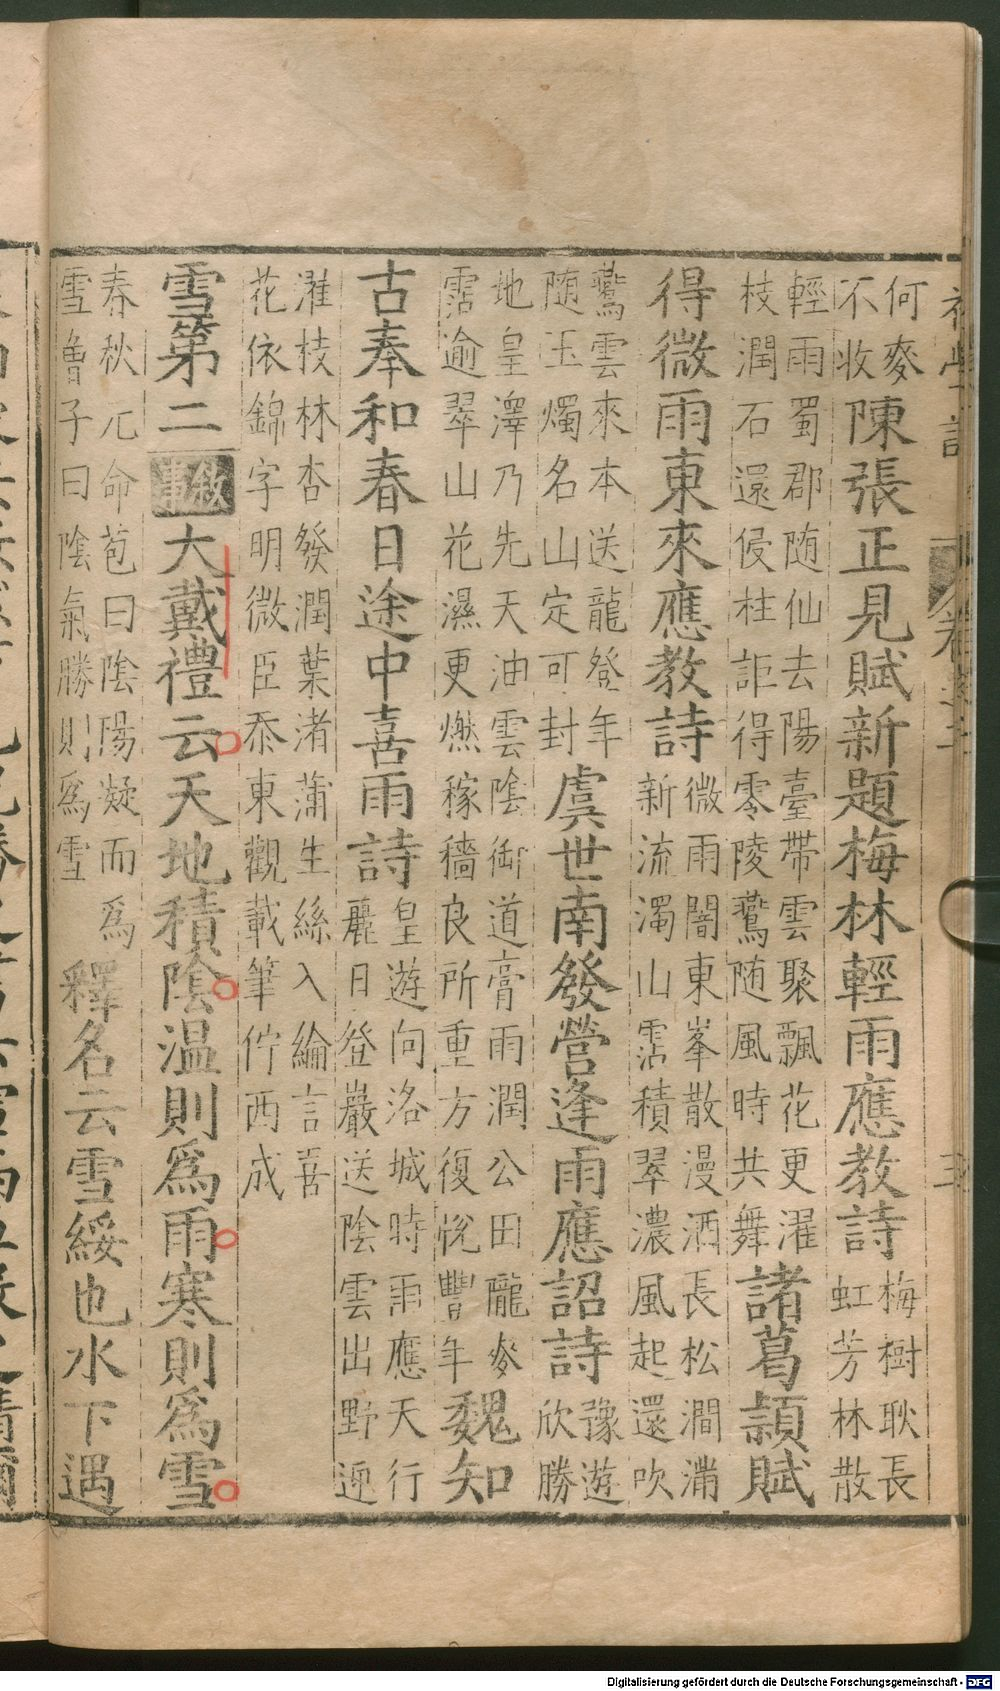 何麥
不收
陳張正見賦新題梅林輕雨應教詩
梅樹耿長
虹芳林散
輕雨蜀郡随仙去陽臺帶雲聚飄花更濯
枝潤石還侵柱詎得零陵鷰随風時共舞
諸葛頴賦
得微雨東來應教詩
微雨闇東峯散漫洒長松澗滿
新流濁山霑積翠濃風起還吹
鷰雲來本送龍登年
随玉燭名山定可封
虞世南發營逢雨應詔詩
豫遊
欣勝
地皇澤乃先天油雲陰御道膏雨潤公田隴麥
霑逾翠山花濕更燃稼穡良所重方復悅豐年
魏知
古奉和春日途中喜雨詩
皇遊向洛城時雨應天行
麗日登巖送陰雲出野迎
濯枝林杏發潤葉渚蒲生絲入綸言喜
花依錦字明微臣忝東觀載筆佇西成
雪第二
敘事
大戴禮云天地積陰温則爲雨寒則爲雪
春秋元命苞曰陰陽凝而爲
雪魯子曰陰氣勝則爲雪
釋名云雪綏也水下遇
Digitalisierung gefördert durch die Deutsche Forschungsgemeinschaft - DFG